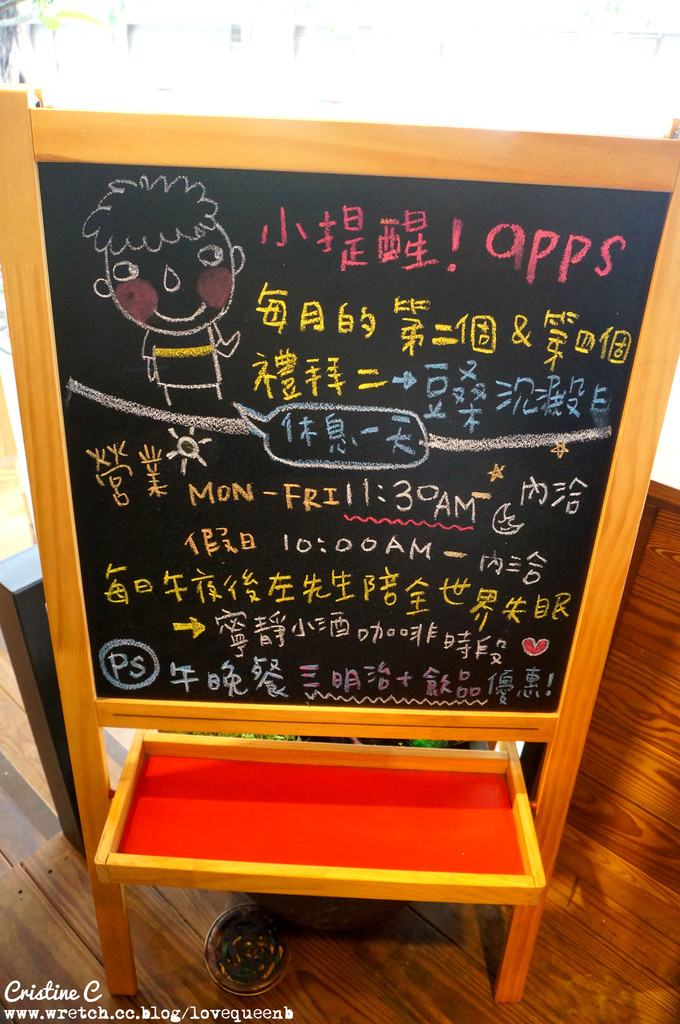 小提醒! apps
每月的 第二個 & 第四個
禮拜二→豆桑沉澱日
休息一天
營業 MON-FRI 11:30AM- 內洽
假日 10:00AM- 內洽
每日午夜後左先生陪全世界失眠
→寧靜小酒咖啡時段
PS 午晚餐 三明治+飲品優惠!
Cristine C
www.wretch.cc.blog/lovequeenb